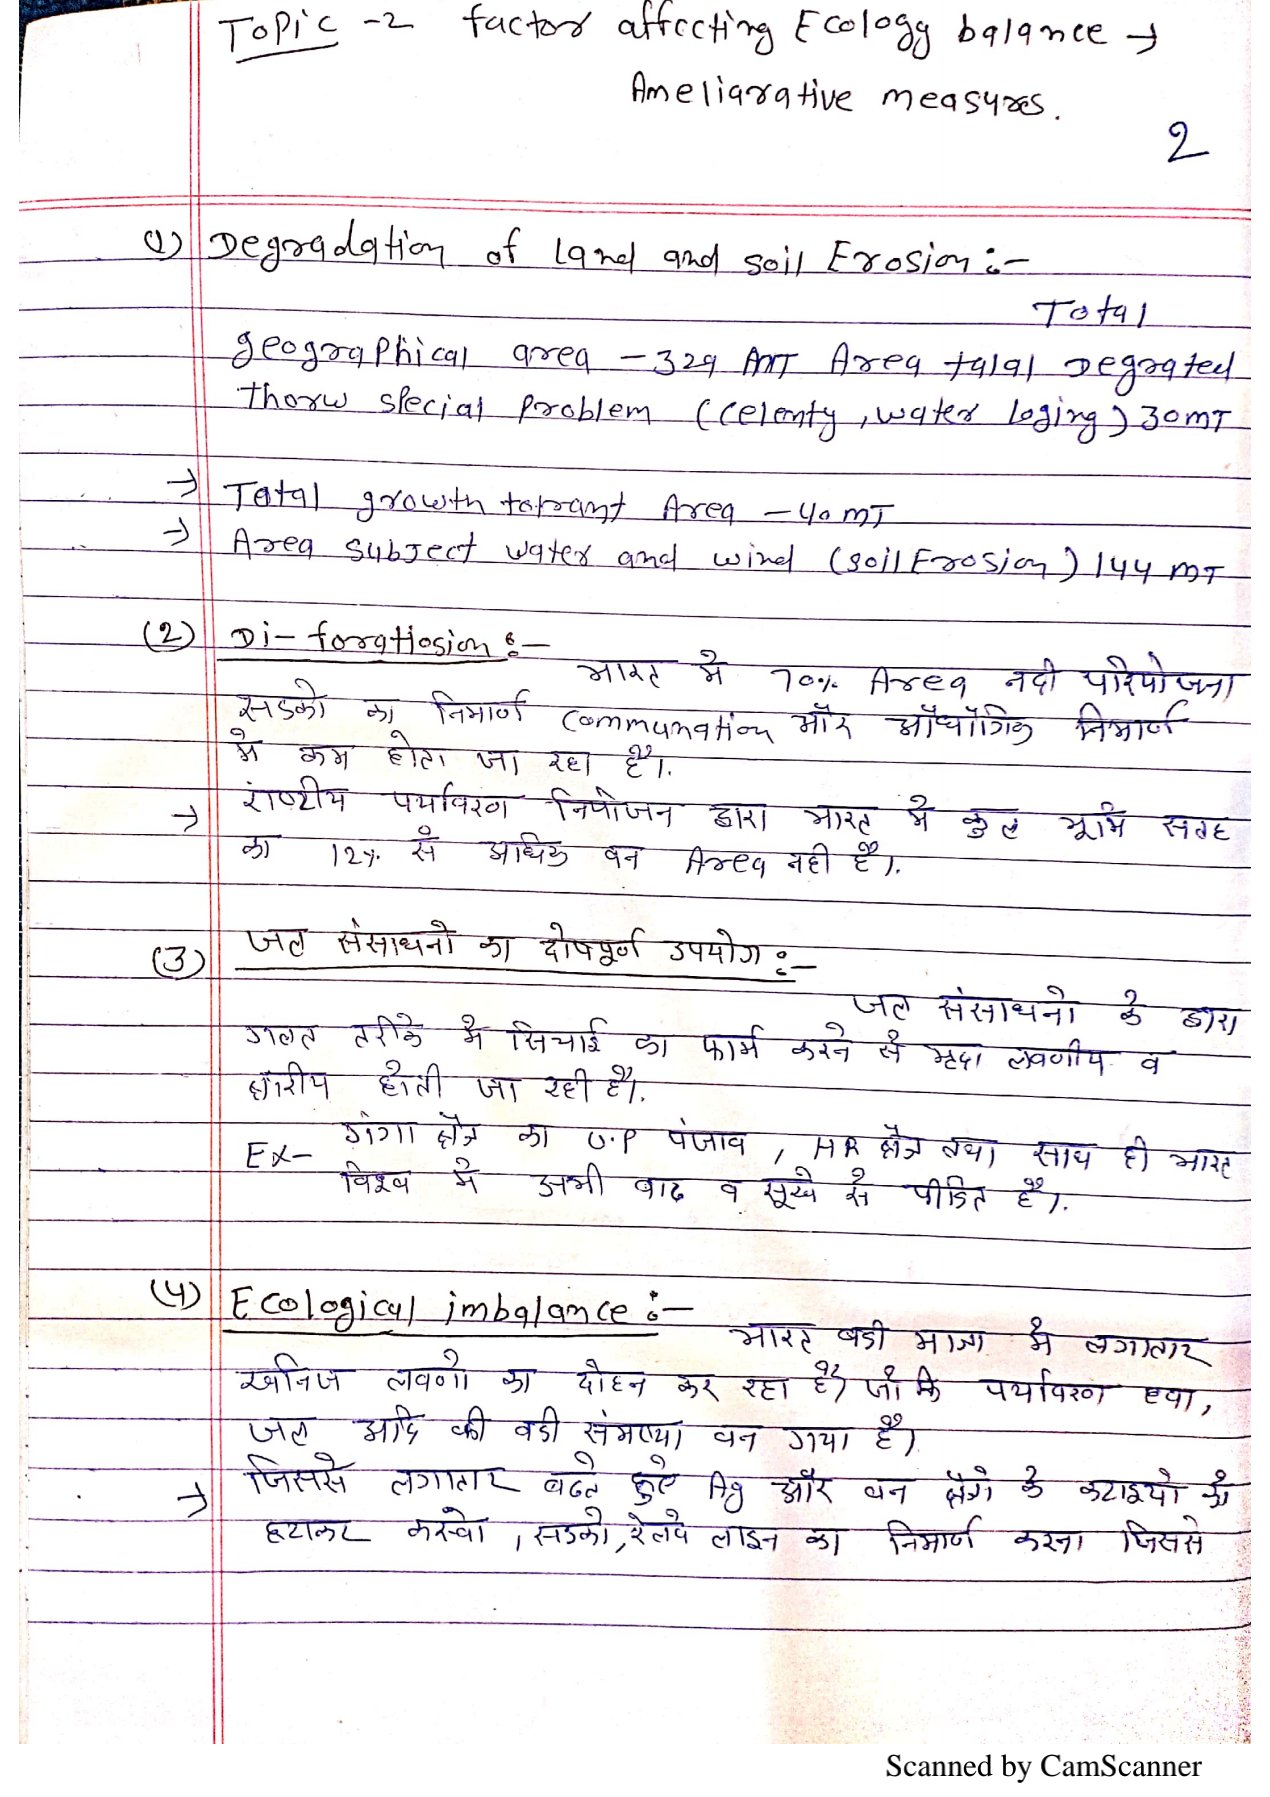 Topic -2 factor affecting Ecology balance →
Ameliarative measures.
2
(1) Degradation of land and soil Erosion :-
Total
geographical area - 329 MT Area talal Degrated
Thorw special problem (Celenty, water loging) 30 MT
→ Total growth torant Area - 40 MT
→ Area subject water and wind (soil Erosion) 144 MT
(2) Di-forattosion :-
भारत मे 70% Area नदी परियोजना
सडको का निमार्ण Communation और औधोगिक निमार्ण
मे कम होता जा रहा है।
→ राष्टीय पर्यावरण नियोजन द्वारा भारत मे कुल भूमि सतह
का 12% से अधिक वन Area नही है।
(3) जल संसाधनो का दोषपूर्ण उपयोग :-
जल संसाधनो के द्वारा
गलत तरीके मे सिचाई का फार्म करने से मृदा लवणीय व
क्षारीय होती जा रही है।
Ex- गंगा क्षेत्र का U.P पंजाव, HR क्षेत्र तथा साथ ही भारत
विश्व मे अभी बाढ व सूखे से पीडित है।
(4) Ecological imbalance :-
भारत बडी मात्रा मे लगातार
खनिज लवणो का दोहन कर रहा है, जो कि पर्यावरण हवा,
जल आदि की बडी संमस्या वन गया है।
→ जिससे लगातार बढते हुऐ Ag और वन क्षेत्रो के कटाइयो को
हटाकर कस्वो, सडको, रेलवे लाइन का निमार्ण करना जिससे
Scanned by CamScanner